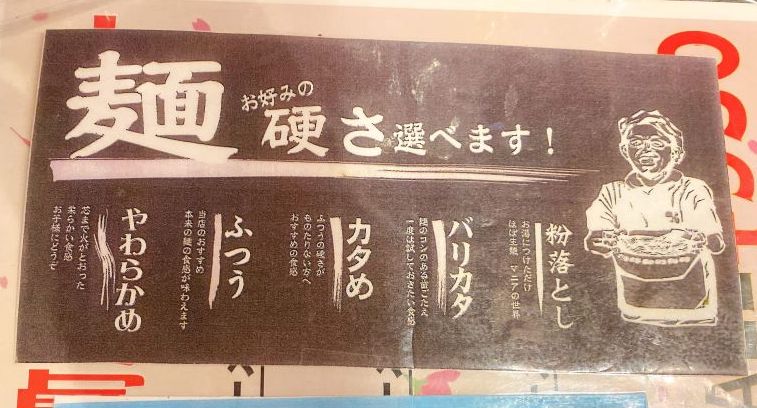 麺
お好みの
硬さ選べます!
粉落とし
お湯につけただけ
ほぼ生麺 マニアの世界
バリカタ
麺のコシのある歯ごたえ
一度は試しておきたい食感
カタめ
ふつうの硬さが
ものたりない方へ
おすすめの食感
ふつう
当店のおすすめ
本来の麺の食感が味わえます
やわらかめ
芯まで火がとおった
柔らかい食感
お子様にどうぞ